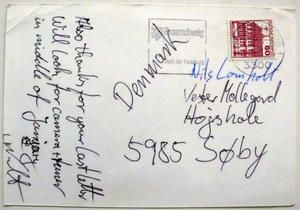 Also thanks for your last letter
Will look for camera + tuner
in middle of January
Braunschweig
3300
60
Denmark
Nils Lomholt
Vester Mollegard
Hogshole
5985 Søby